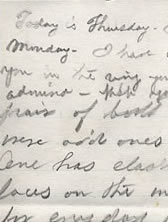 Today is Thursday.
Monday. I have
you in the way you
admire -
pair of boots
were odd ones
One has elas
laces on the
for every day